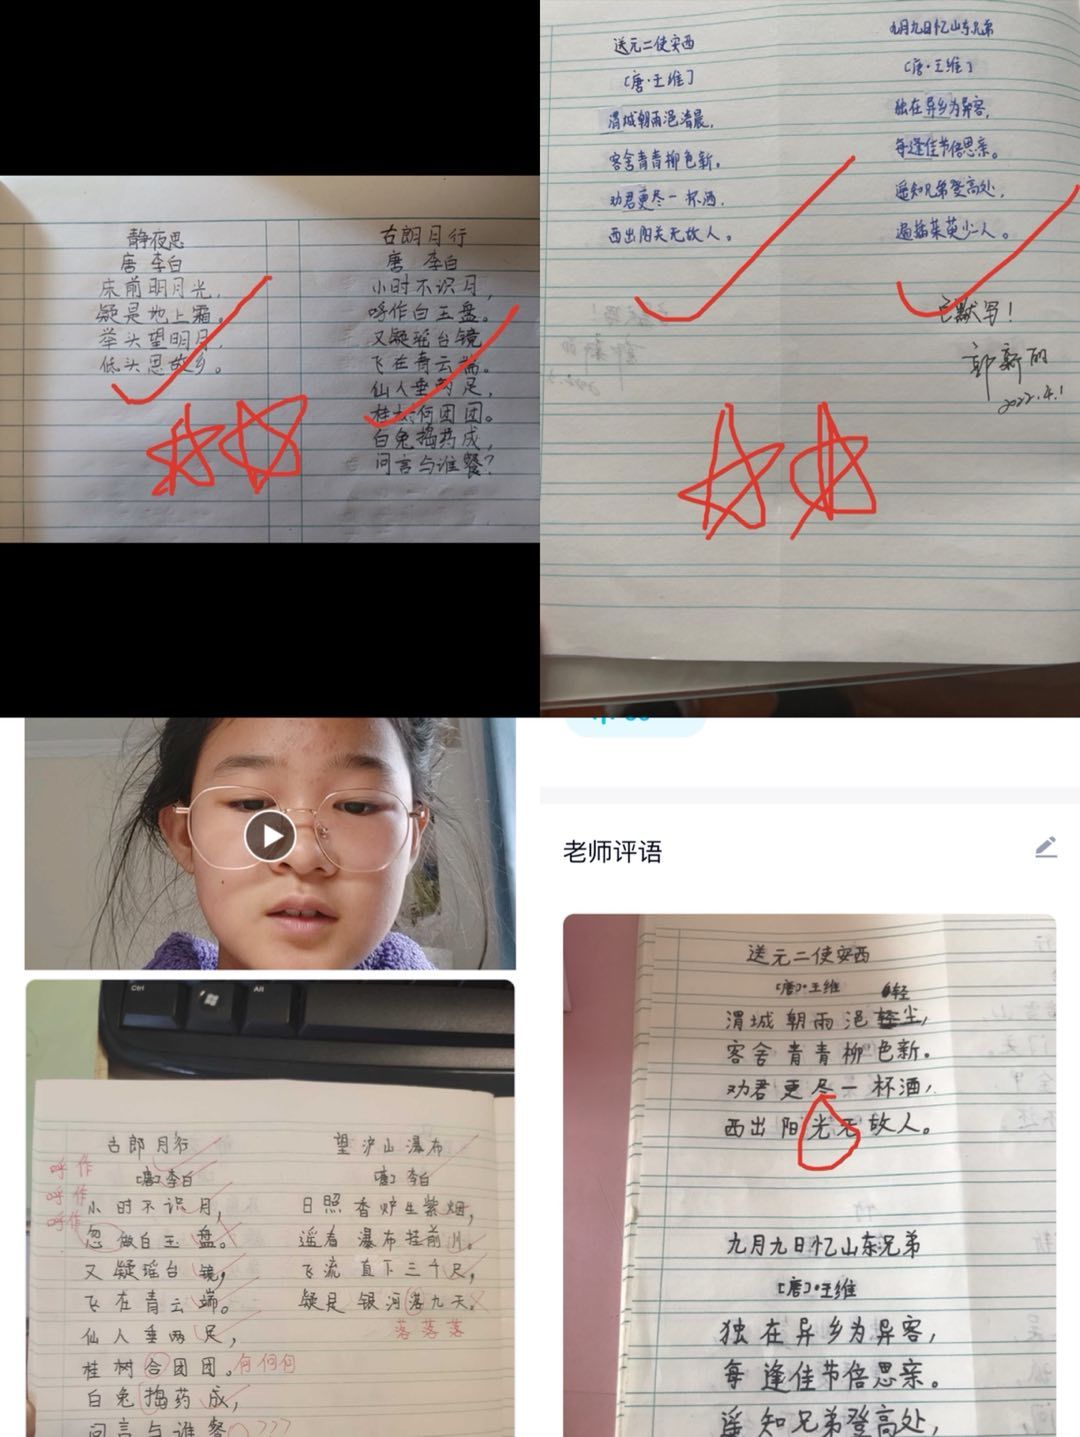 静夜思
唐 李白
床前明月光，
疑是地上霜。
举头望明月，
低头思故乡。
古朗月行
唐 李白
小时不识月，
呼作白玉盘。
又疑瑶台镜
飞在青云端。
仙人垂两足，
桂树何团团。
白兔捣药成，
问言与谁餐？
送元二使安西
〔唐·王维〕
渭城朝雨浥清晨，
客舍青青柳色新。
劝君更尽一杯酒，
西出阳关无故人。
九月九日忆山东兄弟
〔唐·王维〕
独在异乡为异客，
每逢佳节倍思亲。
遥知兄弟登高处，
遍插茱萸少一人。
已默写！
郭新的
2022.4.1
Ctrl
Alt
古郎月行
〔唐〕李白
呼作
呼作
呼作
小时不识月，
忽做白玉盘。
又疑瑶台镜，
飞在青云端。
仙人垂两足，
桂树合团团。何何何
白兔捣药成，
问言与谁餐。???
望沪山瀑布
〔唐〕李白
日照香炉生紫烟，
遥看瀑布挂前川。
飞流直下三千尺，
疑是银河落九天。
落落落
老师评语
送元二使安西
〔唐〕·王维
轻
渭城朝雨浥尘，
客舍青青柳色新。
劝君更尽一杯酒，
西出阳光无故人。
九月九日忆山东兄弟
〔唐〕·王维
独在异乡为异客，
每逢佳节倍思亲。
遥知兄弟登高处，